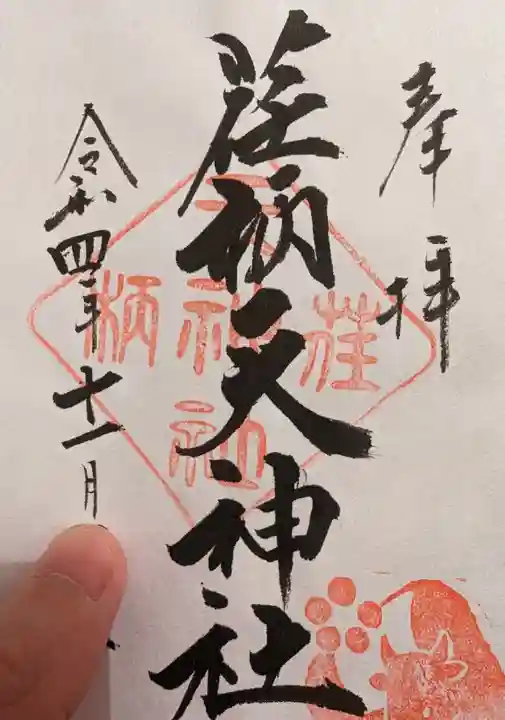 奉拝
荏柄天神社
令和四年十一月
荏
天
神
社
柄